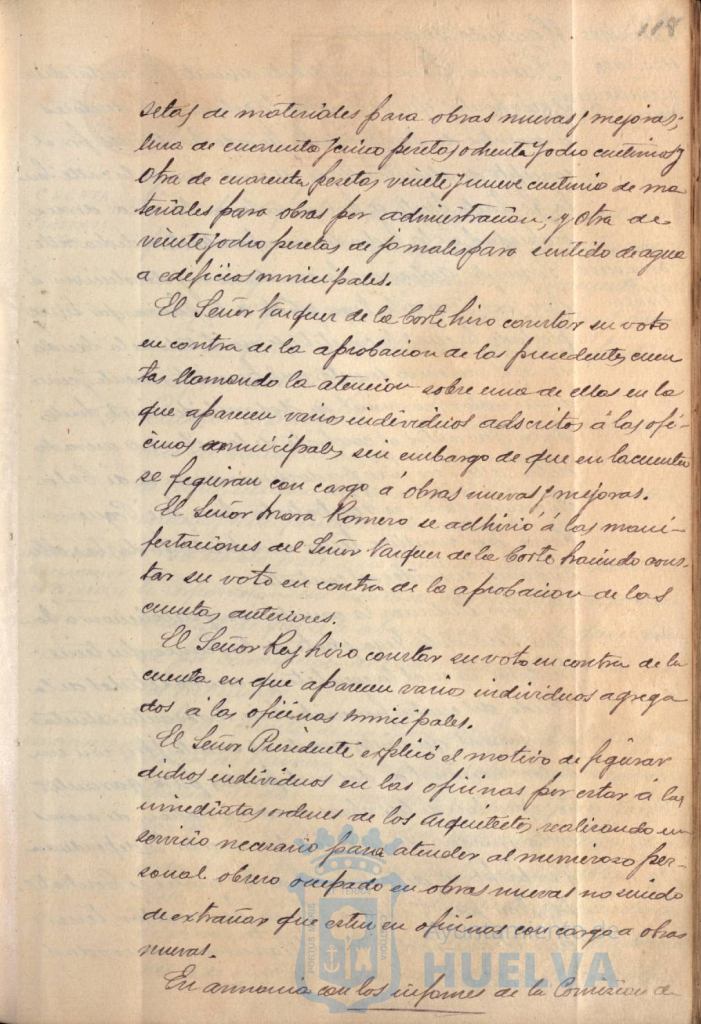 118
setas de materiales para obras nuevas y mejoras;
una de cuarenta y cinco pesetas ochenta y ocho centimos y
otra de cuarenta pesetas veinte y nueve centimos de ma
teriales para obras por administración; y otra de
veinte y ocho pesetas de jornales para surtido de agua
a edeficios municipales.
El Señor Vazquez de la Corte hizo constar su voto
en contra de la aprobacion de las precedentes cuen
tas llamando la atencion sobre una de ellas en la
que aparecen varios individuos adscritos á las ofi-
cinas municipales sin embargo de que en la cuenta
se figuran con cargo á obras nuevas y mejoras.
El Señor Mora Romero se adhirió á las mani-
festaciones del Señor Vazquez de la Corte haciendo cons-
tar su voto en contra de la aprobacion de las
cuentas anteriores.
El Señor Rey hizo constar su voto en contra de la
cuenta en que aparecen varios individuos agrega
dos á las oficinas municipales.
El Señor Presidente explicó el motivo de figurar
dichos individuos en las oficinas por estar á las
inmediatas ordenes de los Arquitectos realizando un
servicio necesario para atender al numeroso per-
sonal obrero ocupado en obras nuevas no siendo
de extrañar que esten en oficinas con cargo a obras
nuevas.
En armonia con los informes de la Comision de
Ayuntamiento de
HUELVA